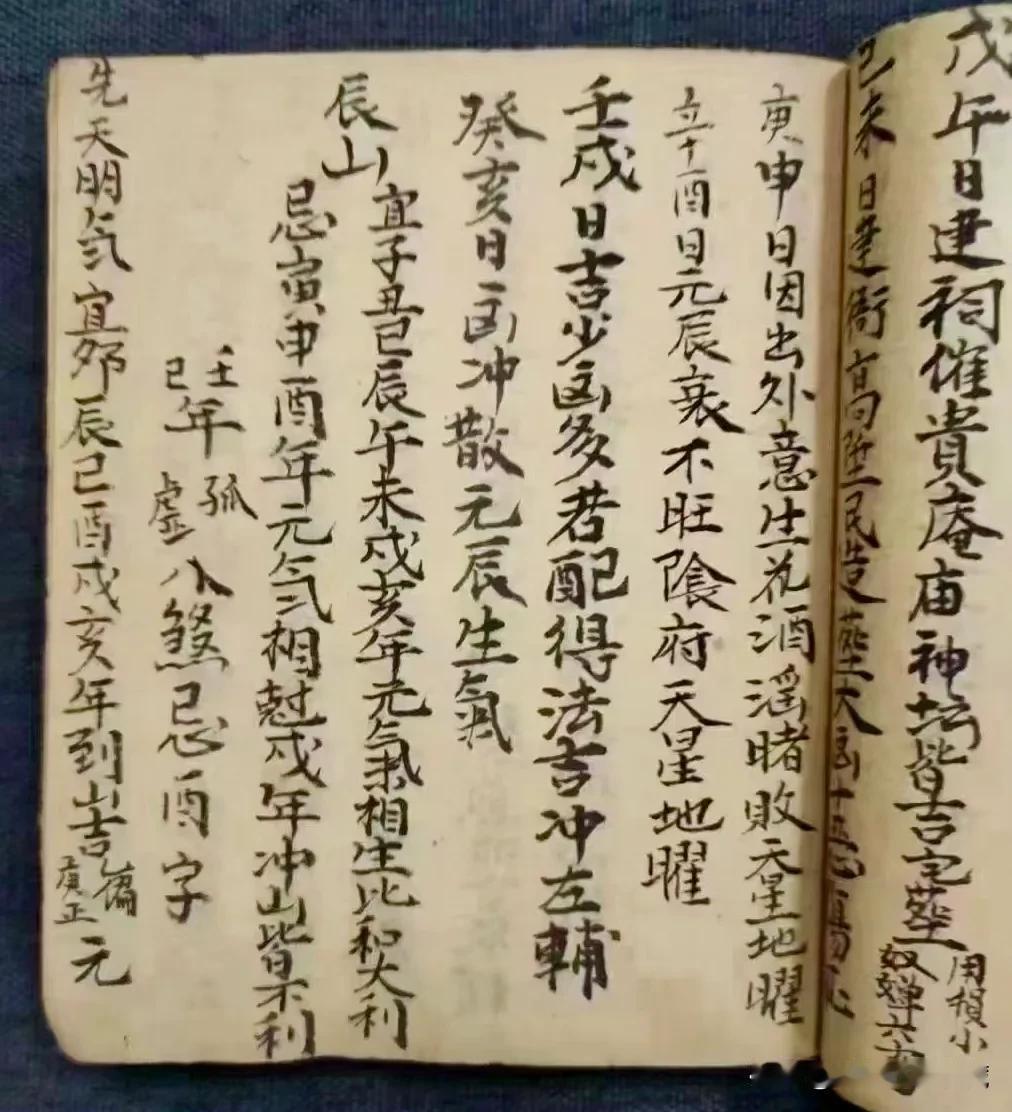 戊午日建祠催貴庵庙神坛皆吉宅塟
用損小
六畜
己未日建衙
民造塟大凶
庚申日因出外意生花酒滛賭敗天星地曜
酉日元辰衰不旺陰府天星地曜
壬戌日吉少凶多若配得法吉冲左輔
癸亥日凶冲散元辰生氣
辰山
宜子丑巳辰午未戌亥年元氣相生比和大利
忌寅申酉年元气相尅戌年冲山皆不利
壬年孤
己年虛
八煞忌酉字
先天明氣宜夘辰巳酉戌亥年到山吉
偏
庚正
元